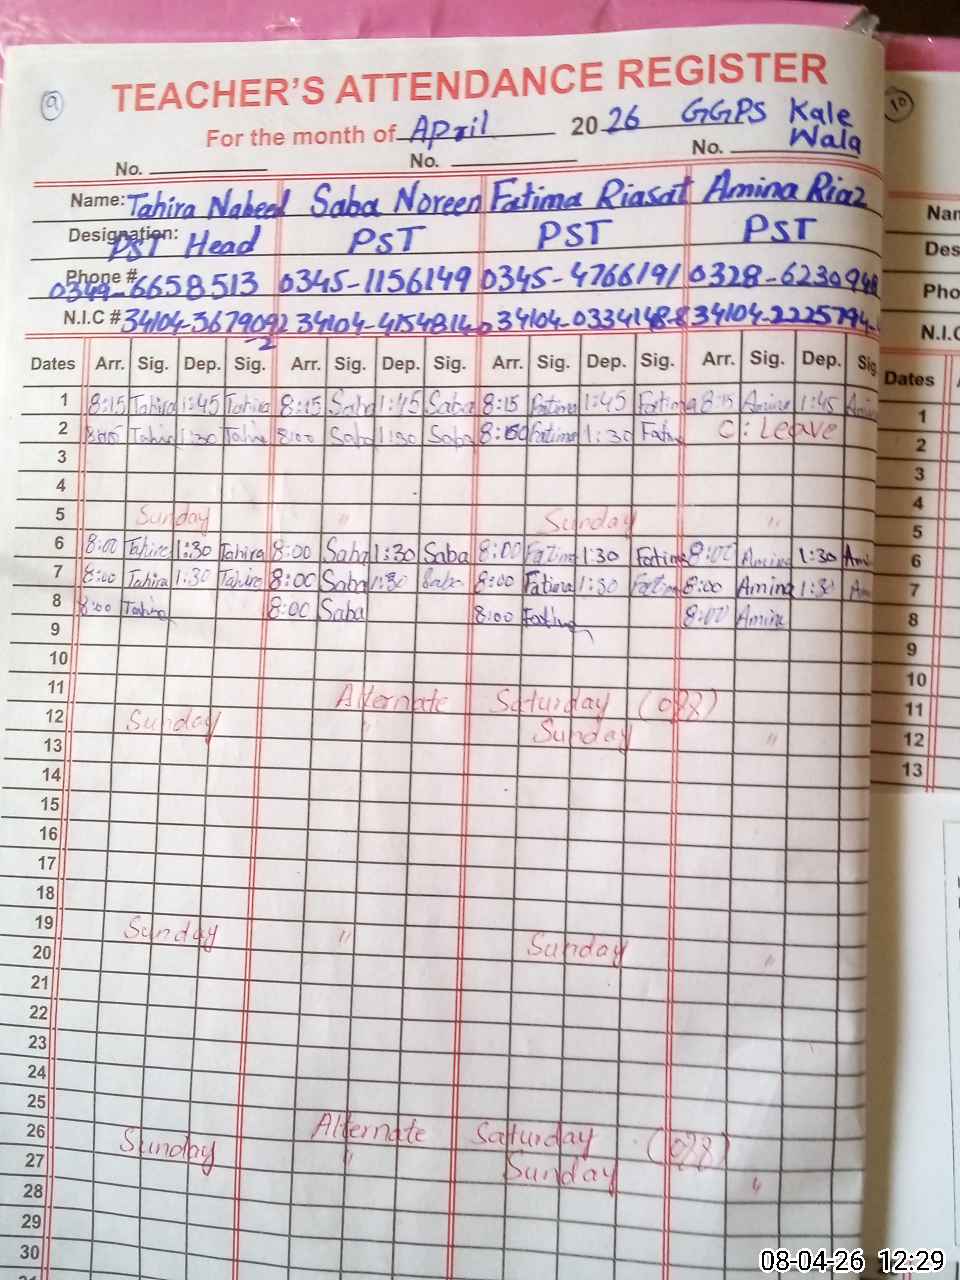 9
TEACHER'S ATTENDANCE REGISTER
10
For the month of April 2026 GGPS Kale Wala
No. No. No.
Name: Tahira Nabeel Saba Noreen Fatima Riasat Amina Riaz
Designation: PST Head PST PST PST
Phone # 0349-6658513 0345-1156149 0345-4766191 0328-6230948
N.I.C # 34104-3679092-2 34104-4154814 34104-0334148-8 34104-2225794-
Dates Arr. Sig. Dep. Sig. Arr. Sig. Dep. Sig. Arr. Sig. Dep. Sig. Arr. Sig. Dep. Sig
1 8:15 Tahira 1:45 Tahira 8:15 Saba 1:45 Saba 8:15 Fatima 1:45 Fatima 8:15 Amina 1:45 Amina
2 Tahira 1:30 Tahira 8:00 Saba 1:30 Saba 8:00 Fatima 1:30 Fatima C: Leave
3
4
5 Sunday " Sunday "
6 8:00 Tahira 1:30 Tahira 8:00 Saba 1:30 Saba 8:00 Fatima 1:30 Fatima 8:00 Amina 1:30 Ami
7 8:00 Tahira 1:30 Tahira 8:00 Saba 1:30 Saba 8:00 Fatima 1:30 Fatima 8:00 Amina 1:30 Am
8 8:00 Tahira 8:00 Saba 8:00 Fatima 8:00 Amina
9
10
11 Alternate Saturday (off)
12 Sunday " Sunday "
13
14
15
16
17
18
19 Sunday " Sunday "
20
21
22
23
24
25 Alternate Saturday (off)
26 Sunday " Sunday "
27
28
29
30
Nam
Des
Pho
N.I.C
Dates
1
2
3
4
5
6
7
8
9
10
11
12
13
08-04-26 12:29